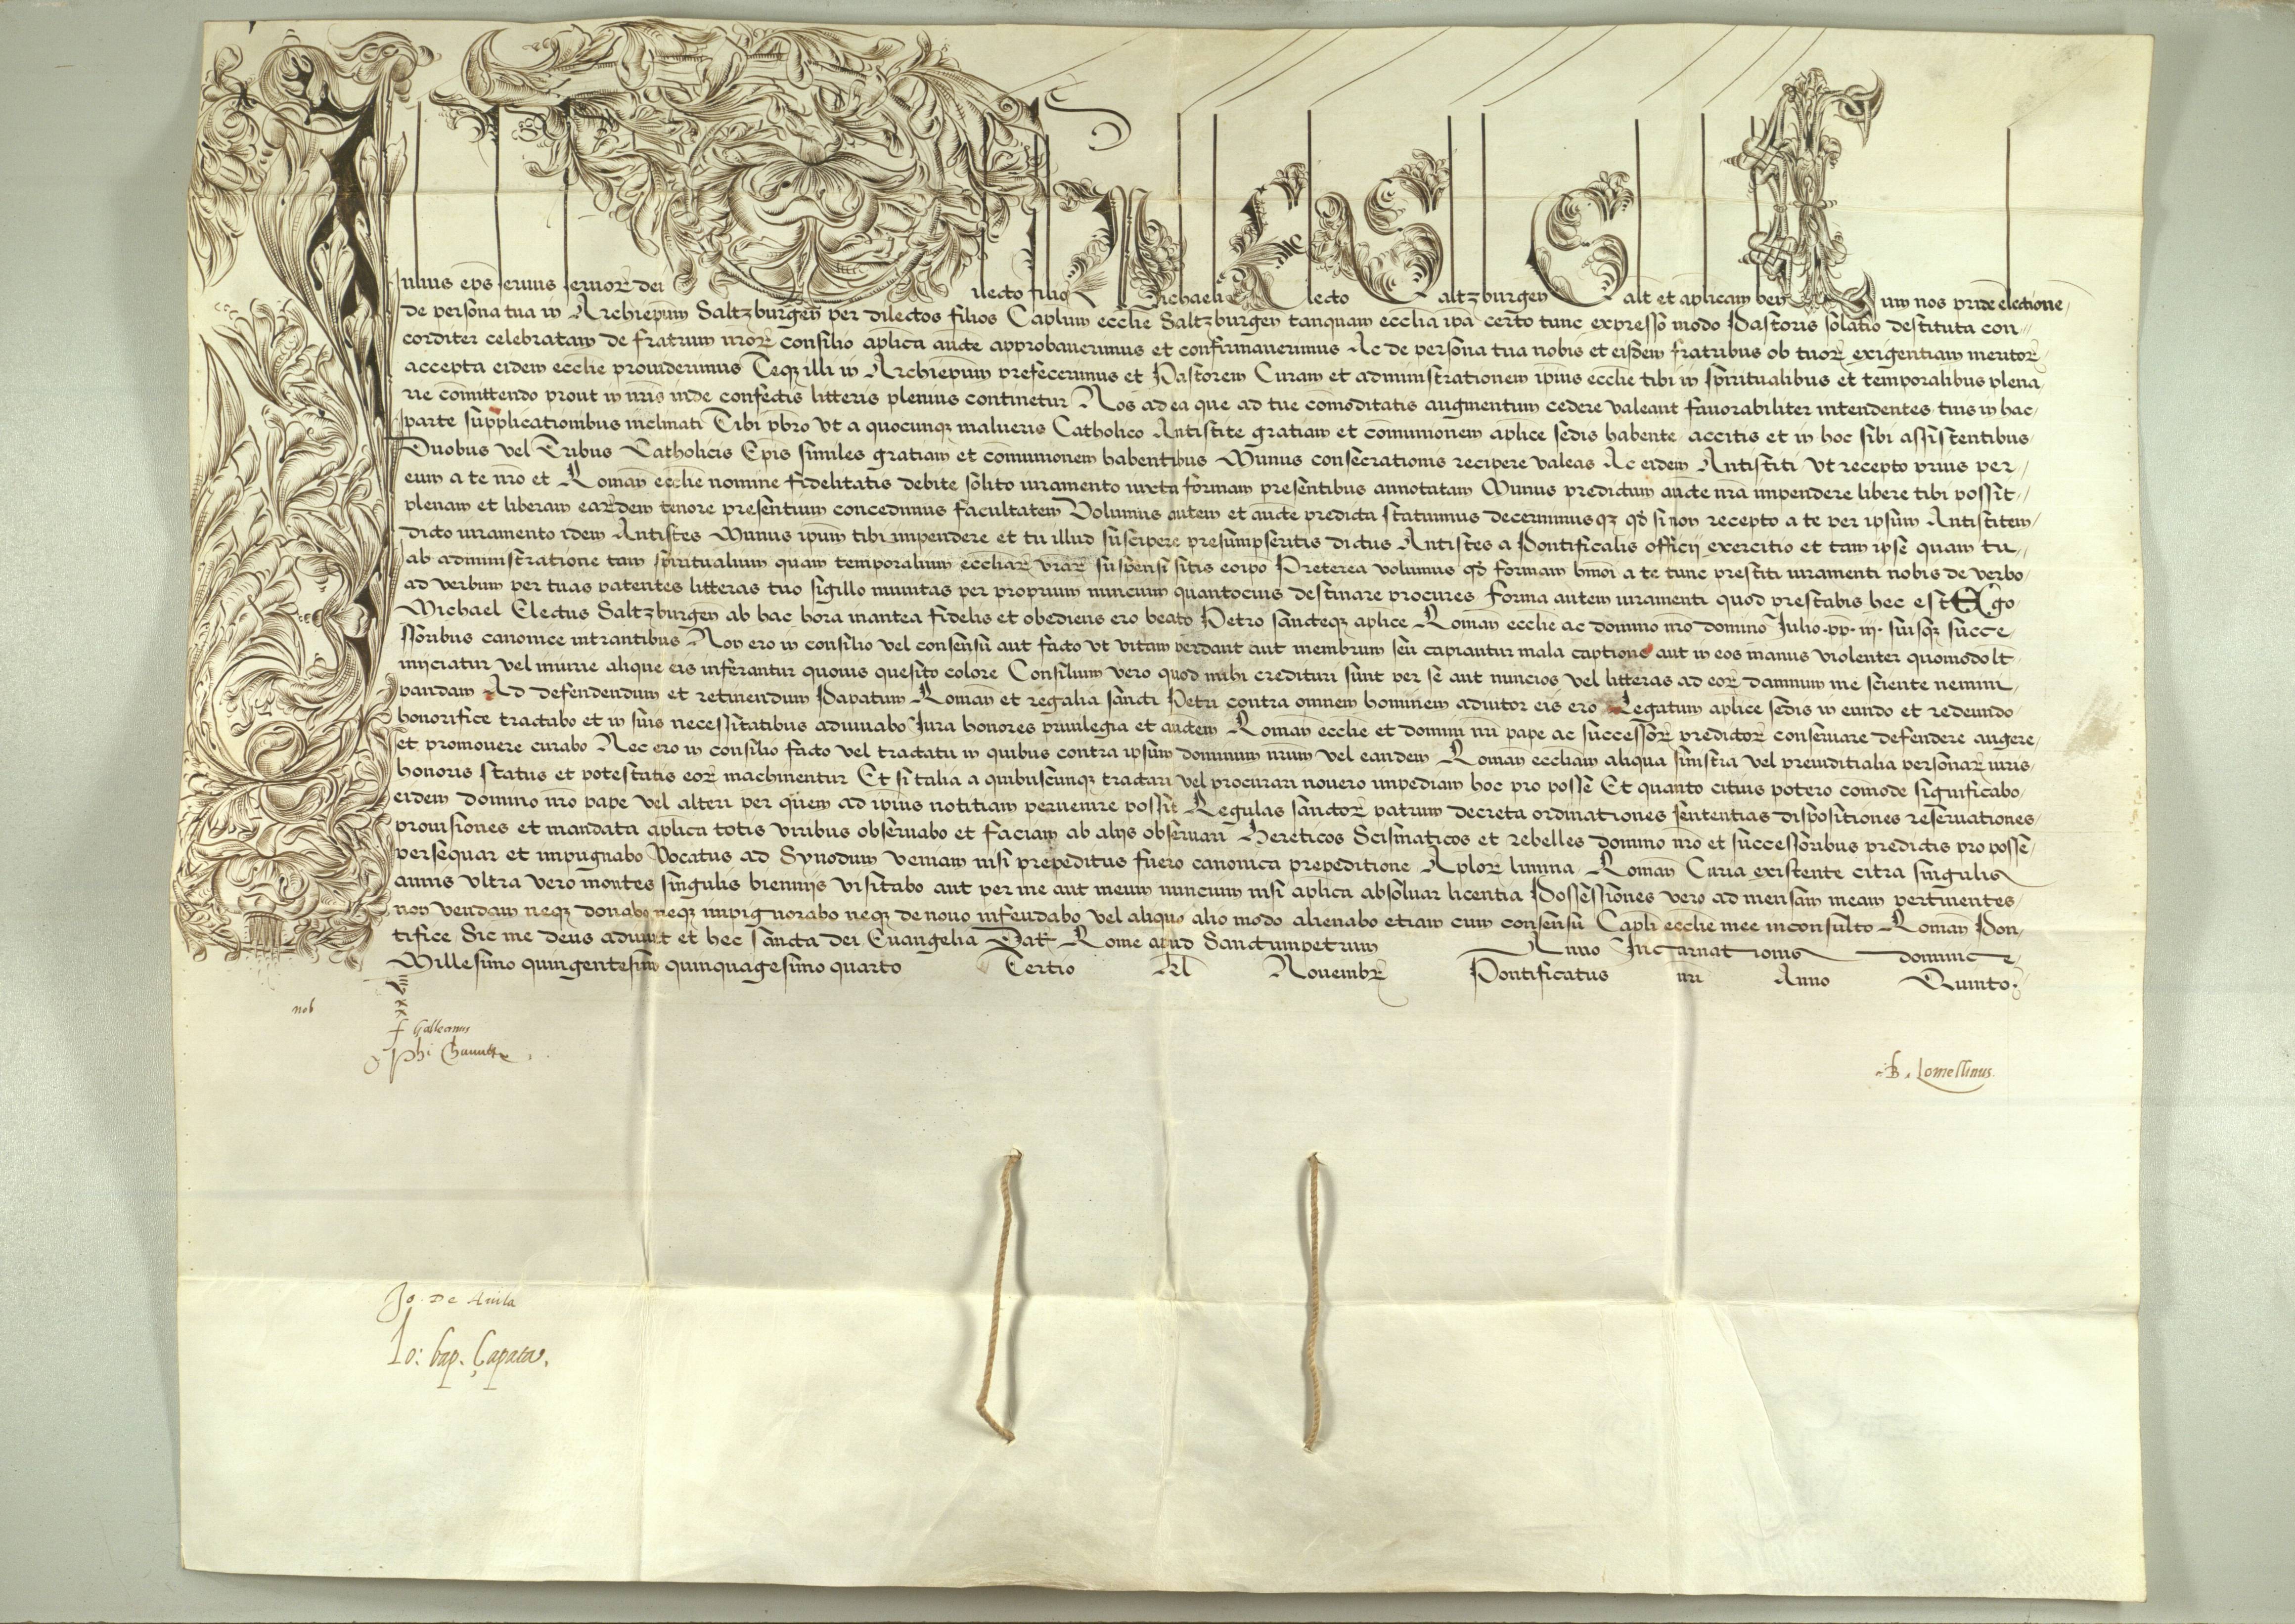 Iulius ep̄s seruus seruoꝝ dei Dilecto filio Michaeli Electo Saltzburgen̄ Salt̄ et ap̄licam ben̄ Cum nos pride electione
de persona tua in Archiep̄um Saltzburgen̄ per dilectos filios Cap̄lum eccl̄ie Saltzburgen̄ tanquam eccl̄ia ip̄a certo tunc expresso modo Pastoris solatio destituta con-
corditer celebratam de fratrum nr̄oꝝ consilio ap̄lica aucte approbauerimus et confirmauerimus Ac de persona tua nobis et eisdem fratribus ob tuoꝝ exigentiam meritoꝝ
accepta eidem eccl̄ie prouiderimus Teqꝫ illi in Archiep̄um prefecerimus et Pastorem Curam et administrationem ip̄ius eccl̄ie tibi in spiritualibus et temporalibus plena
rie com̄ittendo prout in nr̄is inde confectis litteris plenius continetur Nos ad ea que ad tue com̄oditatis augmentum cedere valeant fauorabiliter intendentes tuis in hac
parte supplicationibus inclinati Tibi pb̄ro vt a quocunqꝫ malueris Catholico Antistite gratiam et com̄unionem ap̄lice sedis habente accitis et in hoc sibi assistentibus
Duobus vel Tribus Catholicis Ep̄is similes gratiam et com̄unionem habentibus Munus consecrationis recipere valeas Ac eidem Antistiti vt recepto prius per
eum a te nr̄o et Roman̄ eccl̄ie nomine fidelitatis debite solito iuramento iuxta formam presentibus annotatam Munus predictum aucte nr̄a impendere libere tibi possit
plenam et liberam earundem tenore presentium concedimus facultatem Volumus autem et aucte predicta statuimus decernimusqꝫ qđ si non recepto a te per ipsum Antistitem
dicto iuramento idem Antistes Munus ip̄um tibi impendere et tu illud suscipere presumpseritis dictus Antistes a Pontificalis officij exercitio et tam ipse quam tu
ab administratione tam spiritualium quam temporalium eccliaꝝ vr̄aꝝ suspensi sitis eoip̄o Preterea volumus qđ formam hm̄oi a te tunc prestiti iuramenti nobis de verbo
ad verbum per tuas patentes litteras tuo sigillo munitas per proprium nuncium quantocius destinare procures Forma autem iuramenti quod prestabis hec est Ego
Michael Electus Saltzburgen̄ ab hac hora inantea fidelis et obediens ero beato Petro sancteqꝫ ap̄lice Roman̄ eccl̄ie ac domino nr̄o domino Julio .pp. iij. suisqꝫ succe
ssoribus canonice intrantibus Non ero in consilio vel consensu aut facto vt vitam perdant aut membrum seu capiantur mala captione aut in eos manus violenter quomodol̄t
iniiciatur vel iniurie alique eis inferantur quouis quesito colore Consilium vero quod mihi credituri sunt per se aut nuncios vel litteras ad eoꝝ damnum me sciente nemini
pandam Ad defendendum et retinendum Papatum Roman̄ et regalia sancti Petri contra omnem hominem adiutor eis ero Legatum ap̄lice sedis in eundo et redeundo
honorifice tractabo et in suis necessitatibus adiuuabo Iura honores priuilegia et auctem Roman̄ eccl̄ie et domini nr̄i pape ac successoꝝ predictoꝝ conseruare defendere augere
et promouere curabo Nec ero in consilio facto vel tractatu in quibus contra ipsum dominum nr̄um vel eandem Roman̄ eccl̄iam aliqua sinistra vel preiuditialia personaꝝ iuris
honoris status et potestatis eoꝝ machinentur Et si talia a quibuscunqꝫ tractari vel procurari nouero impediam hoc pro posse Et quanto citius potero com̄ode significabo
eidem domino nr̄o pape vel alteri per quem ad ip̄ius notitiam peruenire possit Regulas sanctoꝝ patrum decreta ordinationes sententias dispositiones reseruationes
prouisiones et mandata ap̄lica totis viribus obseruabo et faciam ab alijs obseruari Hereticos Scismaticos et rebelles domino nr̄o et successoribus predictis pro posse
persequar et impugnabo Vocatus ad Synodum veniam nisi prepeditus fuero canonica prepeditione Ap̄loꝝ limina Roman̄ Curia existente citra singulis
annis Vltra vero montes singulis bienniis visitabo aut per me aut meum nuncium nisi ap̄lica absoluar licentia Possessiones vero ad mensam meam pertinentes
non vendam neqꝫ donabo neqꝫ impignorabo neqꝫ de nouo infeudabo vel aliquo alio modo alienabo etiam cum consensu Cap̄li eccl̄ie mee inconsulto Roman̄ Pon
tifice Sic me deus adiuuet et hec sancta dei Euangelia Dat̄ Rome apud Sanctumpetrum Anno Incarnationis dominice
Millesimo quingentesimo quinquagesimo quarto Tertio Kl̄ Nouembꝝ Pontificatus nr̄i Anno Quinto.
nob
f Galleanus
B. Lomellinus
Jo. De Auila
Io: bap. Çapata.